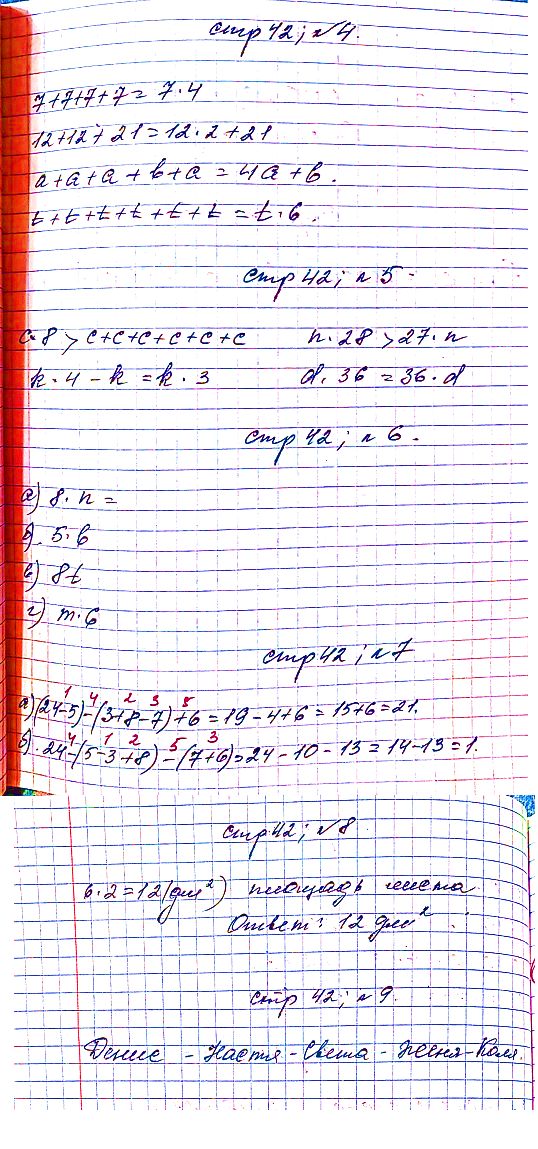 стр 42; №4.
7+7+7+7=7·4
12+12+21=12·2+21
a+a+a+b+a=4a+b.
t+t+t+t+t+t=t·6.
стр 42; №5.
c·8 > c+c+c+c+c+c n·28 > 27·n
k·4-k=k·3 d·36=36·d
стр 42; №6.
а) 8·n=
б). 5·b
в) 8t
г) m·6
стр 42; №7
1 4 2 3 5
а) (24-5)-(3+8-7)+6=19-4+6=15+6=21.
4 1 2 5 3
б). 24-(5-3+8)-(7+6)=24-10-13=14-13=1.
стр 42; №8
6·2=12(дм²) площадь листа
Ответ: 12 дм²
стр 42; №9.
Денис - Настя - Света - Женя - Коля.